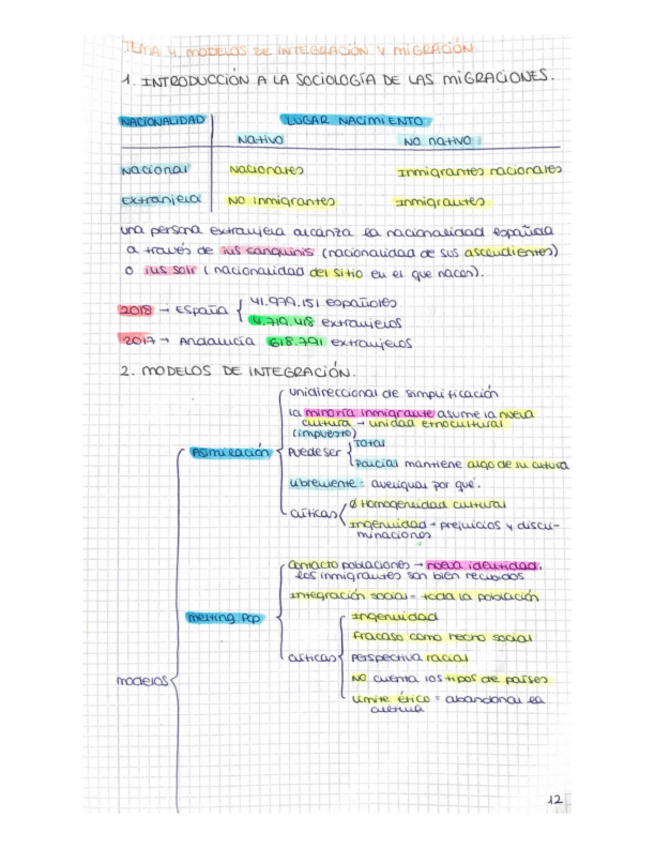 TEMA 4. MODELOS DE INTEGRACIÓN Y MIGRACIÓN.
1. INTRODUCCIÓN A LA SOCIOLOGÍA DE LAS MIGRACIONES.
NACIONALIDAD LUGAR NACIMIENTO
Nativo NO nativo
Nacional Nacionales Inmigrantes nacionales
Extranjera NO inmigrantes Inmigrantes
una persona extranjera alcanza la nacionalidad española
a través de ius sanquinis (nacionalidad de sus ascendientes)
o ius soli (nacionalidad del sitio en el que nacen).
2018 → España { 41.979.151 españoles
4.719.418 extranjeros
2017 → Andalucía 618.791 extranjeros
2. MODELOS DE INTEGRACIÓN.
modelos
Asimilación
unidireccional de simplificación
la minoría inmigrante asume la nueva
cultura → unidad etnocultural
(impuesto)
Puede ser
Total
Parcial mantiene algo de su cultura
Libremente = averiguar por qué.
críticas
Ø Homogeneidad cultural
Ingenuidad → prejuicios y discri-
minaciones
Melting Pop
Contacto poblaciones → nueva identidad.
los inmigrantes son bien recibidos
Integración social = toda la población
críticas
Ingenuidad
Fracaso como hecho social
Perspectiva racial
NO cuenta los tipos de países
Límite ético = abandonar la
cultura
12